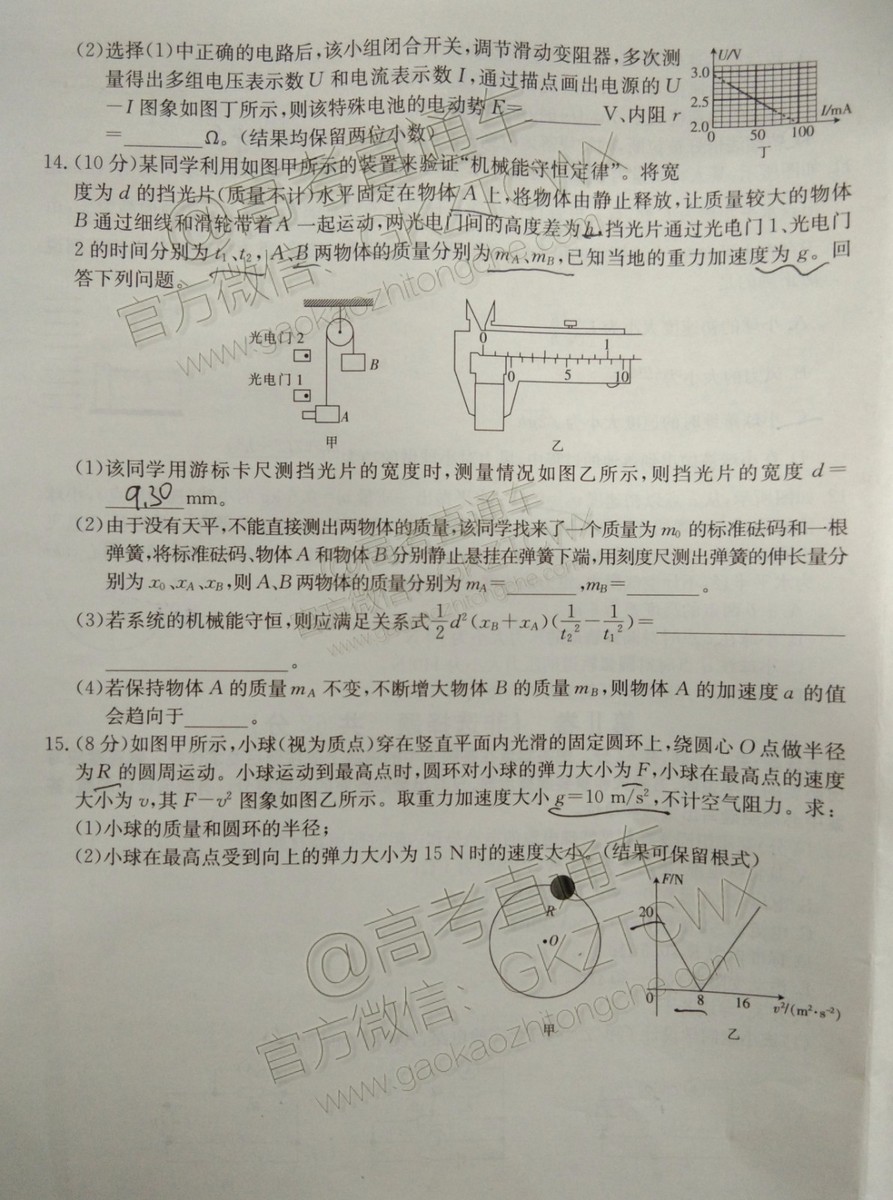 (2)选择(1)中正确的电路后,该小组闭合开关,调节滑动变阻器,多次测
量得出多组电压表示数 U 和电流表示数 I,通过描点画出电源的 U
-I 图象如图丁所示,则该特殊电池的电动势 E=________V、内阻 r
=________Ω。(结果均保留两位小数)
U/V
3.0
2.5
2.0
0 50 100
I/mA
丁
14.(10 分)某同学利用如图甲所示的装置来验证“机械能守恒定律”。将宽
度为 d 的挡光片(质量不计)水平固定在物体 A 上,将物体由静止释放,让质量较大的物体
B 通过细线和滑轮带着 A 一起运动,两光电门间的高度差为 h,挡光片通过光电门 1、光电门
2 的时间分别为 t₁、t₂,A、B 两物体的质量分别为 mA、mB,已知当地的重力加速度为 g。回
答下列问题。
光电门 2
B
光电门 1
A
甲
0 1
0 5 10
乙
(1)该同学用游标卡尺测挡光片的宽度时,测量情况如图乙所示,则挡光片的宽度 d=
9.30 mm。
(2)由于没有天平,不能直接测出两物体的质量,该同学找来了一个质量为 m₀ 的标准砝码和一根
弹簧,将标准砝码、物体 A 和物体 B 分别静止悬挂在弹簧下端,用刻度尺测出弹簧的伸长量分
别为 x₀、xA、xB,则 A、B 两物体的质量分别为 mA=________,mB=________。
(3)若系统的机械能守恒,则应满足关系式 1/2 d²(xB+xA)(1/t₂²-1/t₁²)=________________
________________。
(4)若保持物体 A 的质量 mA 不变,不断增大物体 B 的质量 mB,则物体 A 的加速度 a 的值
会趋向于______。
15.(8 分)如图甲所示,小球(视为质点)穿在竖直平面内光滑的固定圆环上,绕圆心 O 点做半径
为 R 的圆周运动。小球运动到最高点时,圆环对小球的弹力大小为 F,小球在最高点的速度
大小为 v,其 F-v² 图象如图乙所示。取重力加速度大小 g=10 m/s²,不计空气阻力。求:
(1)小球的质量和圆环的半径;
(2)小球在最高点受到向上的弹力大小为 15 N 时的速度大小。(结果可保留根式)
R
O
甲
F/N
20
0 8 16
v²/(m²·s⁻²)
乙
@高考直通车
官方微信:GKZTCWX
www.gaokaozhitongche.com